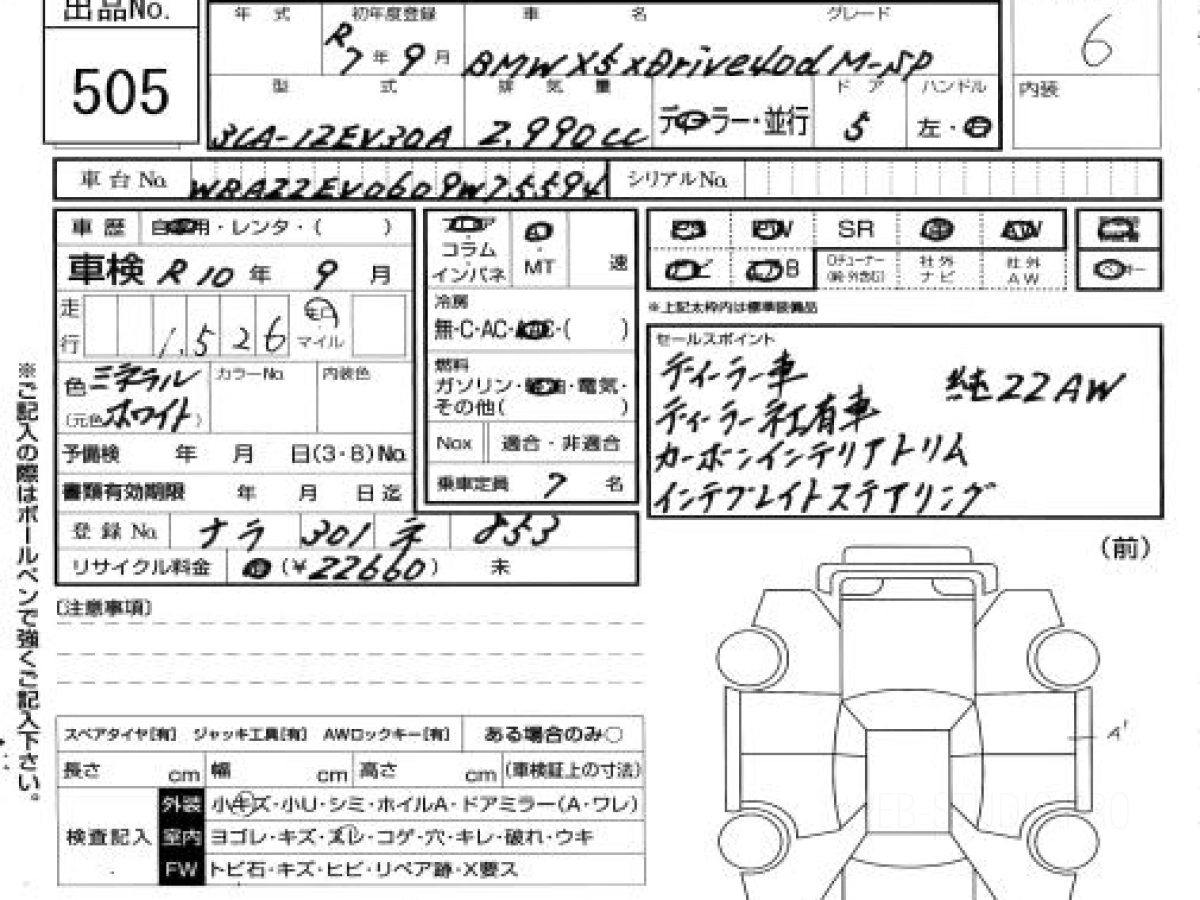 出品No.
505
年 式 初年度登録 車 名 グレード
R7年9月 BMW X5 xDrive40d M-SP 6
型 式 排 気 量 ド ア ハンドル 内装
3CA-12EV30A 2,990cc ディーラー・並行 5 左・右
車 台 No. WBA22EV0609W75594 シリアルNo.
車 歴 自家用・レンタ・( )
フロア・コラム・インパネ
AT・MT 速
PS PW SR 革 AW
ナビ Dチューナー(純・外含む) 社外ナビ 社外AW
※上記太枠内は標準装備品
車検 R10年 9月
走行 1,526 km マイル
冷房
無・C・AC・AAC・( )
色 ミネラルホワイト カラーNo. 内装色
(元色 )
燃料
ガソリン・軽油・電気・
その他( )
Nox 適合・非適合
予備検 年 月 日(3・8)No.
書類有効期限 年 月 日迄
乗車定員 7 名
登 録 No. ナラ 301 ネ 853
リサイクル料金 済 (¥22660) 未
セールスポイント
ディーラー車 純22AW
ディーラー社有車
カーボンインテリアトリム
インテグレイトステアリング
〔注意事項〕
(前)
A1
スペアタイヤ[有] ジャッキ工具[有] AWロックキー[有] ある場合のみ○
長さ cm 幅 cm 高さ cm (車検証上の寸法)
検査記入
外装 小キズ・小U・シミ・ホイルA・ドアミラー(A・ワレ)
室内 ヨゴレ・キズ・スレ・コゲ・穴・キレ・破れ・ウキ
FW トビ石・キズ・ヒビ・リペア跡・X要ス
※ご記入の際はボールペンで強くご記入下さい。